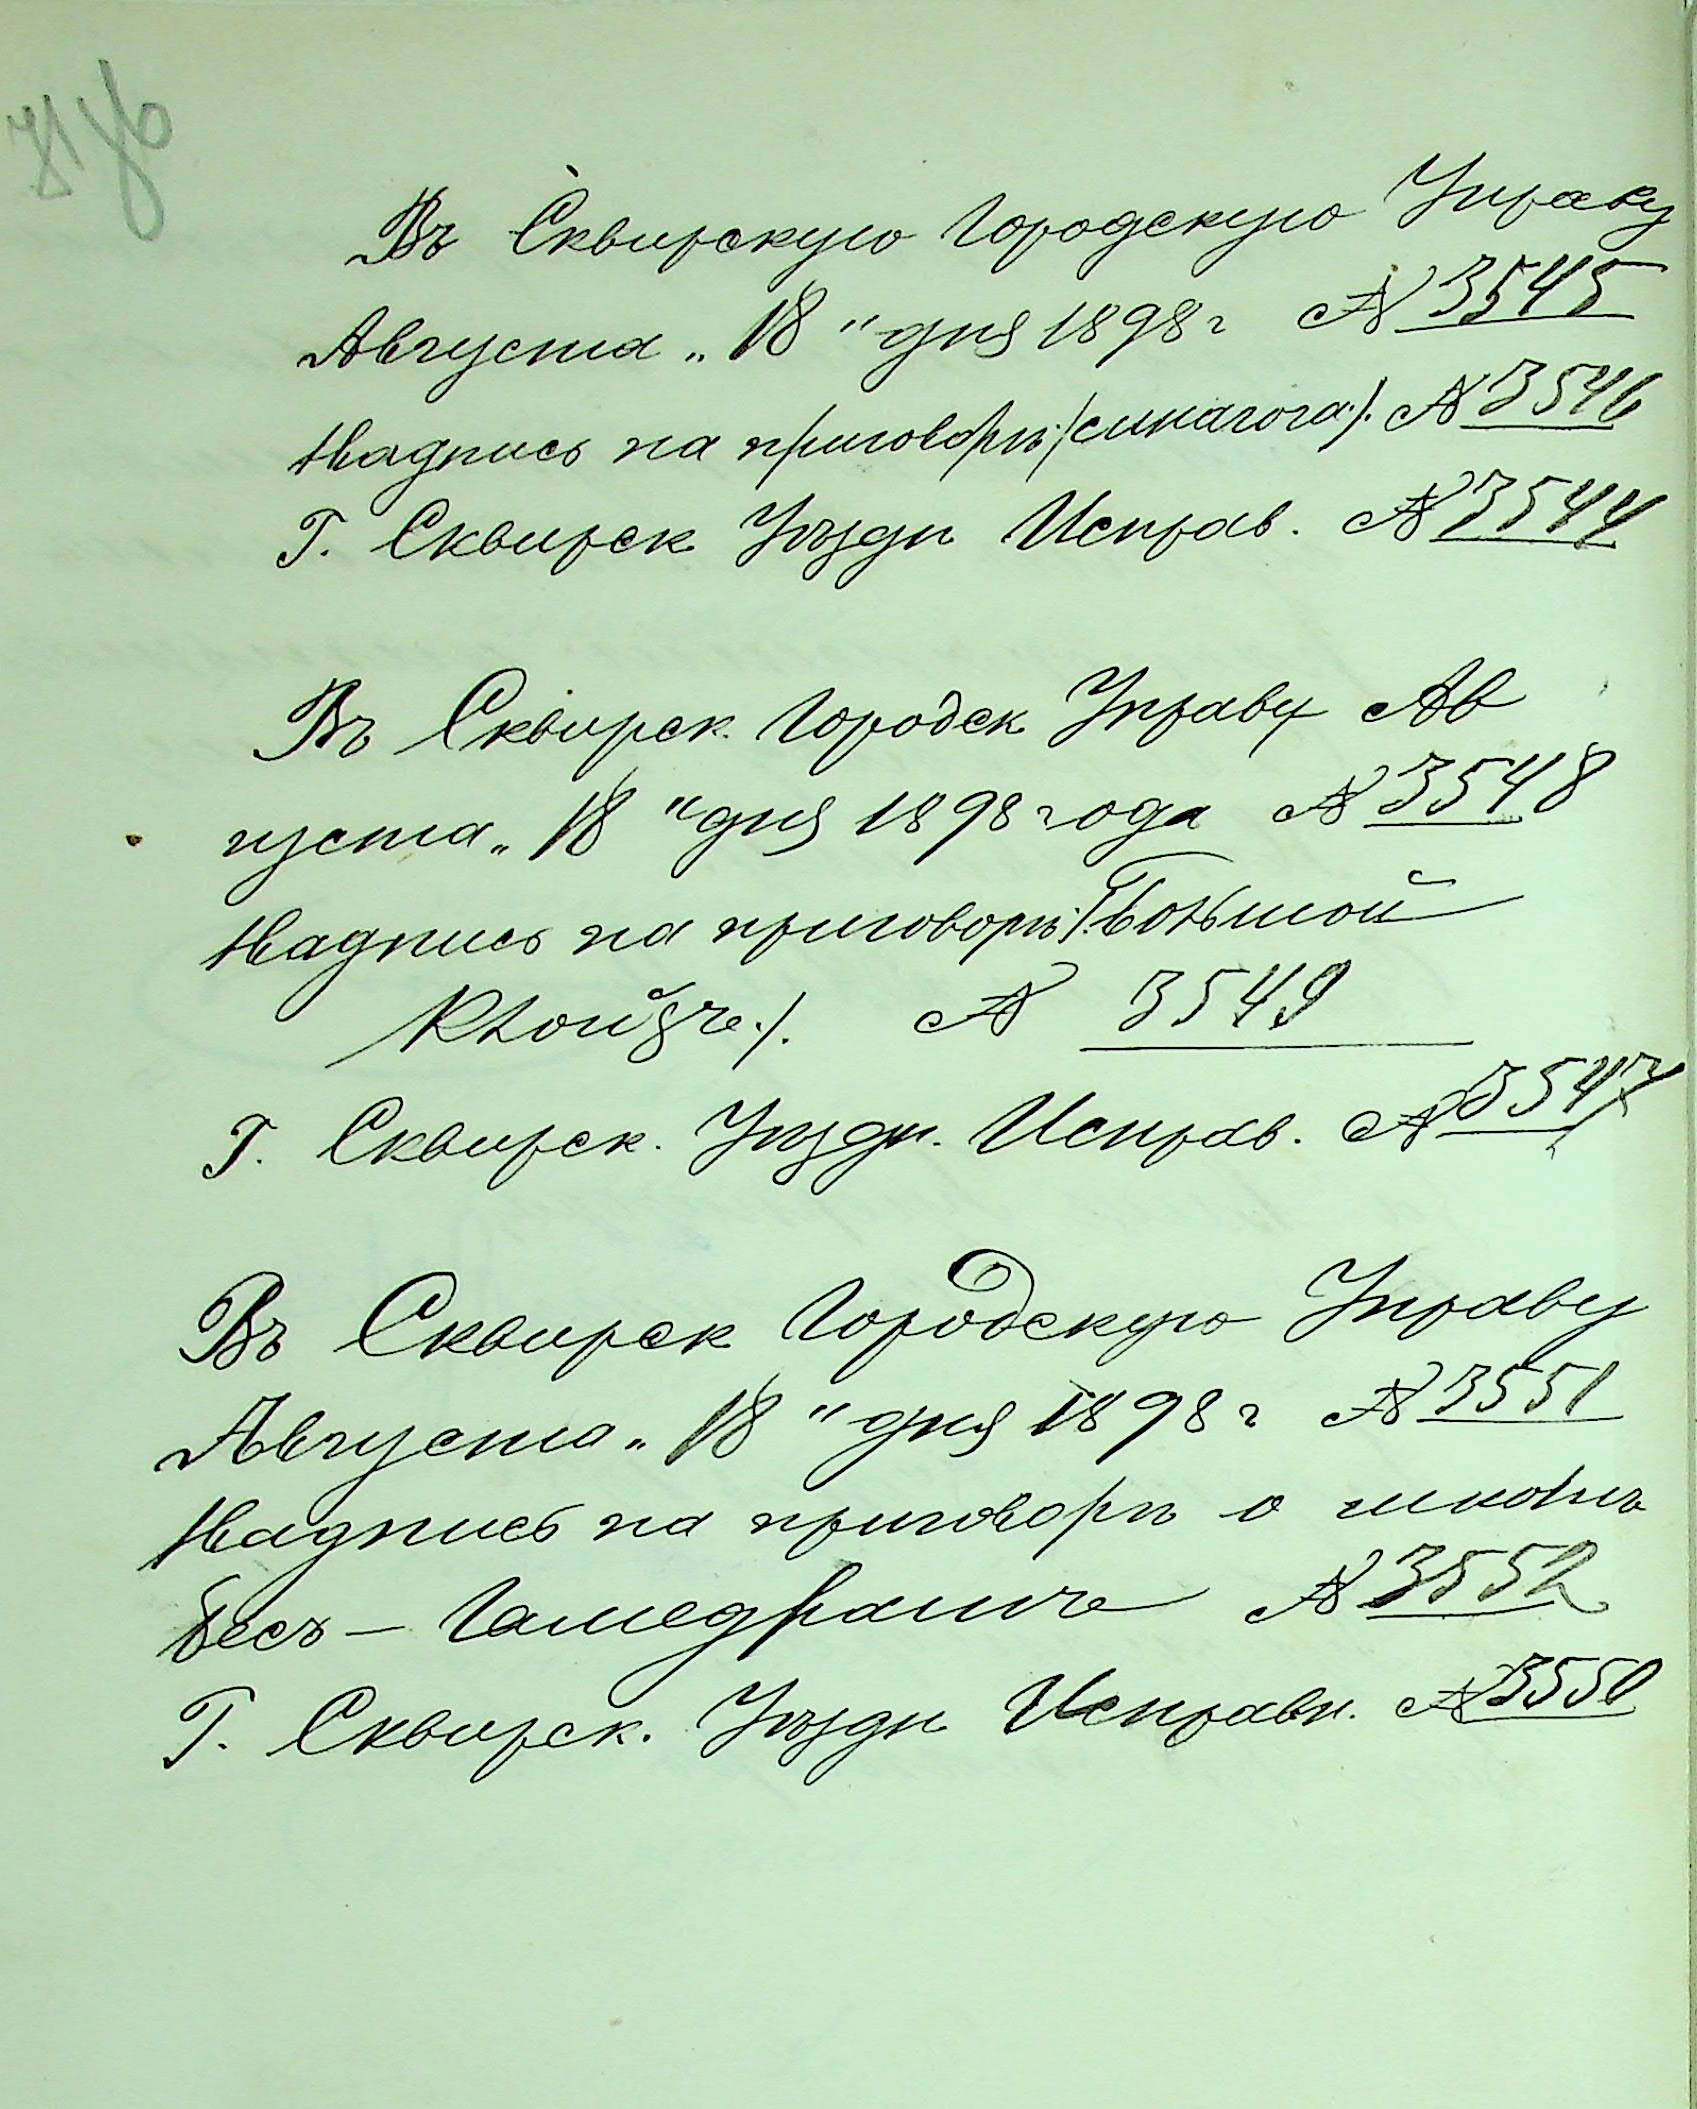 Въ Сквирскую Городскую Управу
Августа „ 18 " дня 1898 г № 3545
Надпись на приговорѣ /:синагога:/. № 3546
Г. Сквирск Уѣздн Исправ. № 3544
Въ Сквирск. Городск Управу Ав
густа „ 18 " дня 1898 года № 3548
Надпись на приговорѣ /:Большой
Клойзъ:/. № 3549
Г. Сквирск. Уѣздн. Исправ. № 3547
Въ Сквирск Городскую Управу
Августа „ 18 " дня 1898 г № 3551
Надпись на приговорѣ о школѣ
Бесъ – Гамедрашъ № 3552
Г. Сквирск. Уѣздн Исправн. № 3550